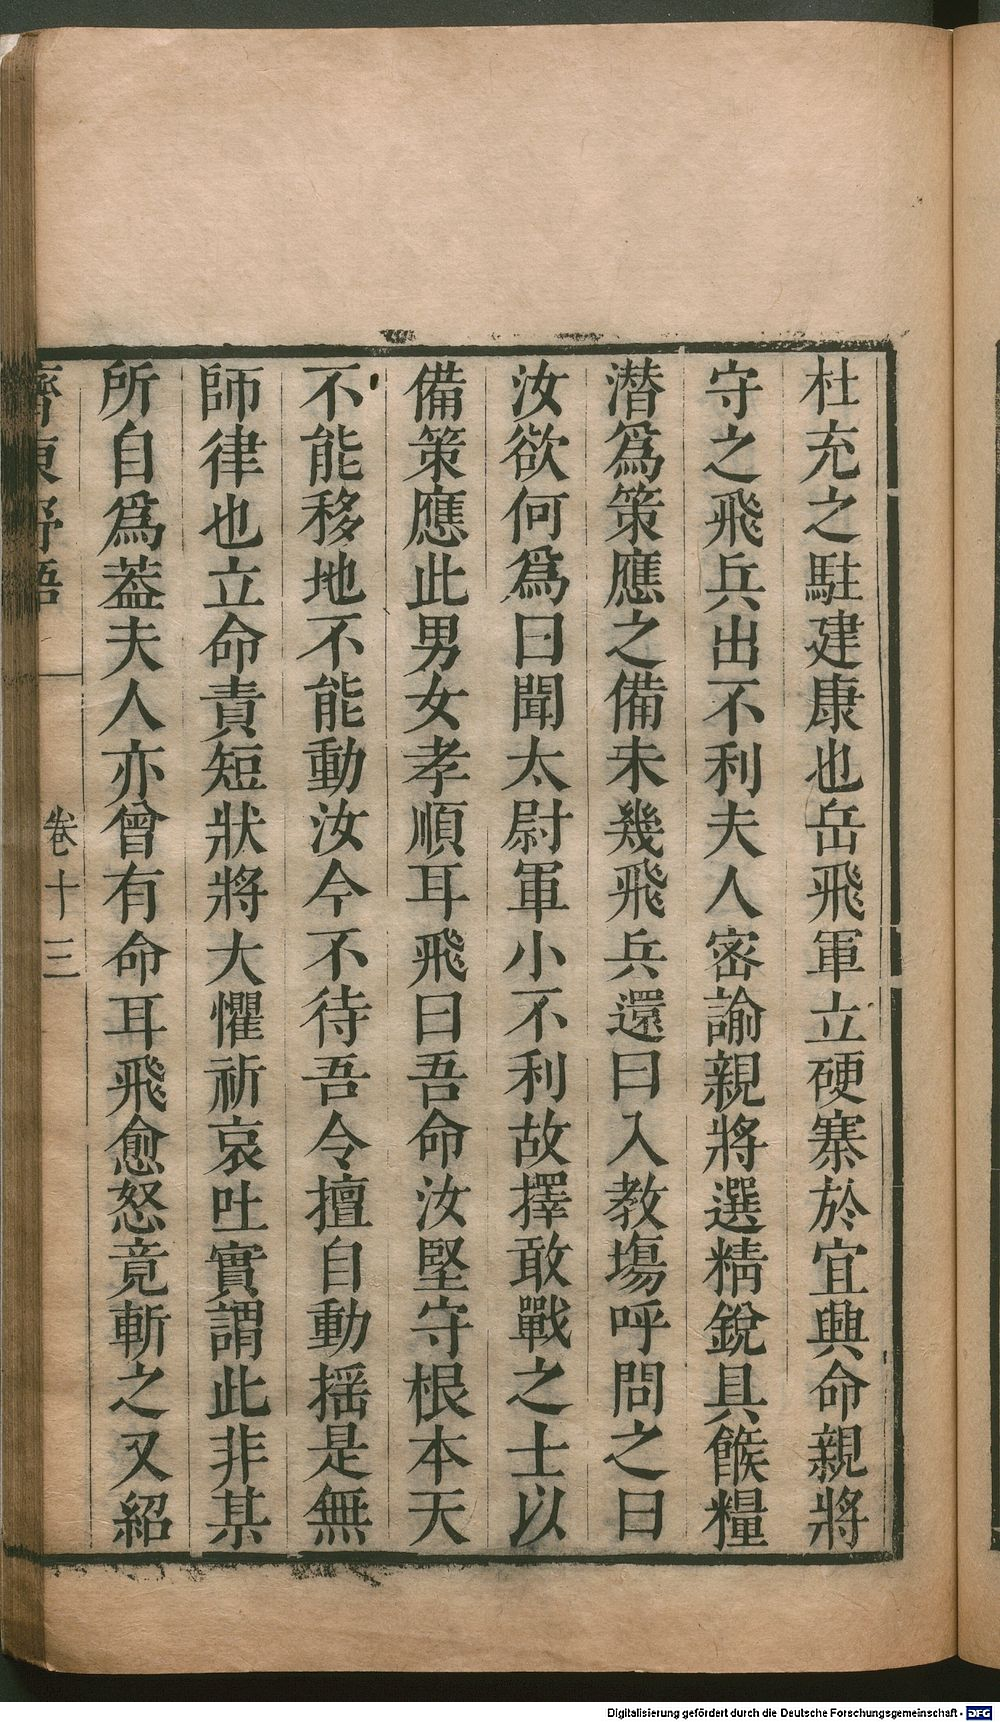 杜充之駐建康也岳飛軍立硬寨於宜興命親將
守之飛兵出不利夫人密諭親將選精銳具餱糧
潜爲策應之備未幾飛兵還曰入教塲呼問之曰
汝欲何爲曰聞太尉軍小不利故擇敢戰之士以
備策應此男女孝順耳飛曰吾命汝堅守根本天
不能移地不能動汝今不待吾令擅自動揺是無
師律也立命責短狀將大懼祈哀吐實謂此非某
所自爲葢夫人亦曾有命耳飛愈怒竟斬之又紹
齊東野語 卷十三
Digitalisierung gefördert durch die Deutsche Forschungsgemeinschaft - DFG